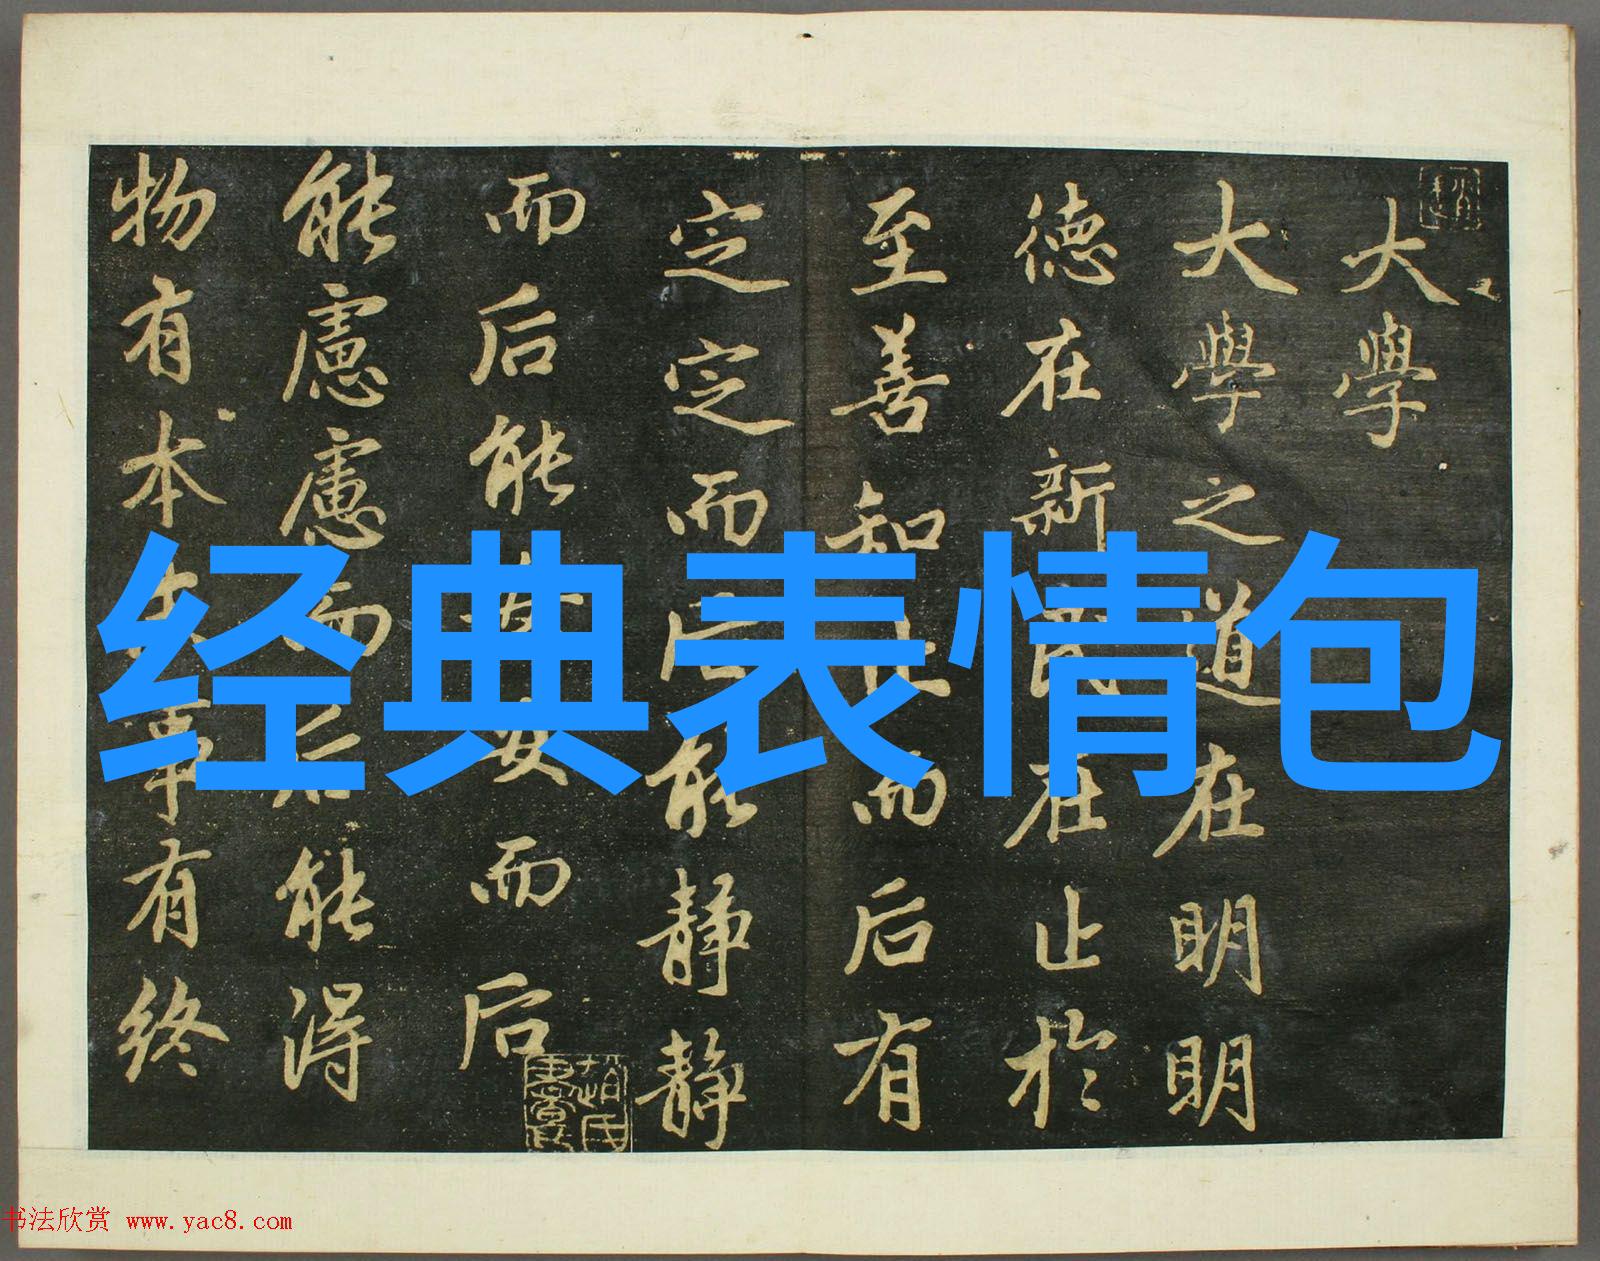 大學
大學之道在明明
德在新民在止於
至善知止而后有
定定而后能静静
而后能安安而后
能慮慮而后能得
物有本末事有終
经典表情包
书法欣赏 www.yac8.com